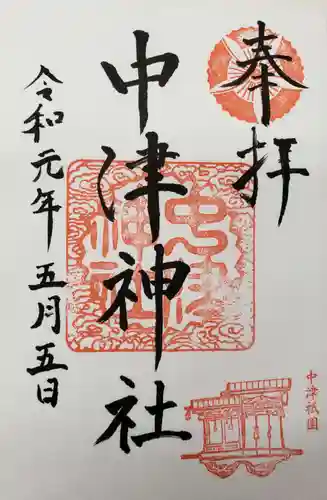 奉拝
中津神社
令和元年五月五日
中津神社
中津祇園